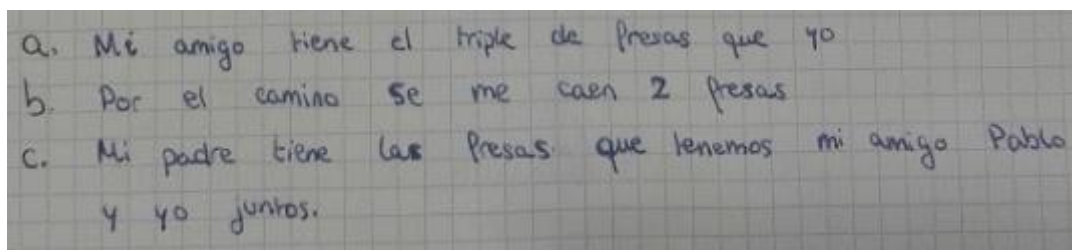 a. Mi amigo tiene el triple de fresas que yo
b. Por el camino se me caen 2 fresas
c. Mi padre tiene las fresas que tenemos mi amigo Pablo
y yo juntos.